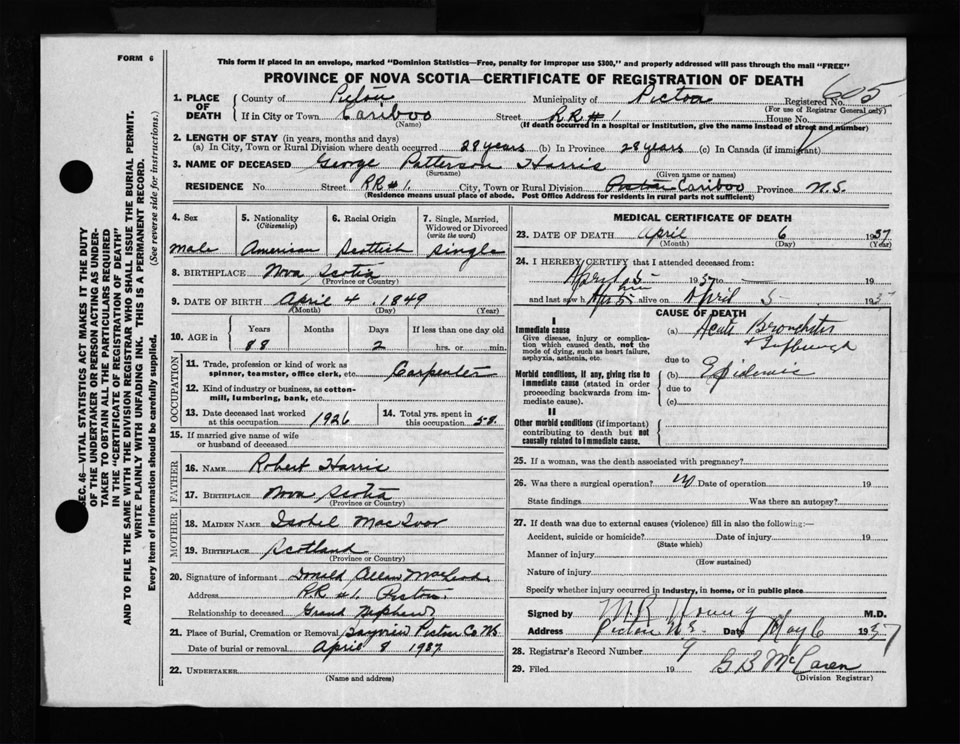 FORM 6
This form if placed in an envelope, marked "Dominion Statistics—Free, penalty for improper use $300," and properly addressed will pass through the mail "FREE"
PROVINCE OF NOVA SCOTIA—CERTIFICATE OF REGISTRATION OF DEATH
605
1. PLACE OF DEATH
County of Pictou Municipality of Pictou Registered No.
(For use of Registrar General only)
If in City or Town Cariboo Street RR #1 House No.
(Name) (If death occurred in a hospital or institution, give the name instead of street and number)
2. LENGTH OF STAY (in years, months and days)
(a) In City, Town or Rural Division where death occurred 28 years (b) In Province 28 years (c) In Canada (if immigrant)
3. NAME OF DECEASED George Patterson Harris
(Surname) (Given name or names)
RESIDENCE No. Street RR #1. City, Town or Rural Division Cariboo Province N.S.
(Residence means usual place of abode. Post Office Address for residents in rural parts not sufficient)
4. Sex 5. Nationality (Citizenship) 6. Racial Origin 7. Single, Married, Widowed or Divorced (write the word)
male American Scottish single
8. BIRTHPLACE Nova Scotia
(Province or Country)
9. DATE OF BIRTH April 4. 1849
(Month) (Day) (Year)
10. AGE in Years Months Days If less than one day old
88 2 hrs. or min.
OCCUPATION
11. Trade, profession or kind of work as spinner, teamster, office clerk, etc. Carpenter
12. Kind of industry or business, as cotton-mill, lumbering, bank, etc.
13. Date deceased last worked at this occupation 1926
14. Total yrs. spent in this occupation 58.
15. If married give name of wife or husband of deceased
FATHER
16. NAME Robert Harris
17. BIRTHPLACE Nova Scotia
(Province or Country)
MOTHER
18. MAIDEN NAME Isobel MacIvor
19. BIRTHPLACE Scotland
(Province or Country)
20. Signature of informant Donald Allan MacLeod
Address R.R #1. Pictou
Relationship to deceased Grand Nephew
21. Place of Burial, Cremation or Removal Bayview Pictou Co. NS
Date of burial or removal April 8 1937
22. UNDERTAKER
(Name and address)
MEDICAL CERTIFICATE OF DEATH
23. DATE OF DEATH April 6 1937
(Month) (Day) (Year)
24. I HEREBY CERTIFY that I attended deceased from:
April 5 1937 to 19
and last saw h him alive on April 5 193
CAUSE OF DEATH
I
Immediate cause
Give disease, injury or complication which caused death, not the mode of dying, such as heart failure, asphyxia, asthenia, etc.
(a) Acute Bronchitis
due to
Morbid conditions, if any, giving rise to immediate cause (stated in order proceeding backwards from immediate cause).
(b) Epidemic
due to
(c)
II
Other morbid conditions (if important) contributing to death but not causally related to immediate cause.
25. If a woman, was the death associated with pregnancy?
26. Was there a surgical operation? no Date of operation 19
State findings Was there an autopsy?
27. If death was due to external causes (violence) fill in also the following:—
Accident, suicide or homicide? Date of injury 19
(State which)
Manner of injury
(How sustained)
Nature of injury
Specify whether injury occurred in industry, in home, or in public place
Signed by M.R. Young M.D.
Address Pictou N.S. Date May 6 1937
28. Registrar's Record Number 9
29. Filed 19 G B McLaren
(Division Registrar)
SEC. 46—VITAL STATISTICS ACT MAKES IT THE DUTY
OF THE UNDERTAKER OR PERSON ACTING AS UNDER-
TAKER TO OBTAIN ALL THE PARTICULARS REQUIRED
IN THE "CERTIFICATE OF REGISTRATION OF DEATH"
AND TO FILE THE SAME WITH THE DIVISION REGISTRAR WHO SHALL ISSUE THE BURIAL PERMIT.
WRITE PLAINLY WITH UNFADING INK. THIS IS A PERMANENT RECORD.
Every item of information should be carefully supplied. (See reverse side for instructions.)